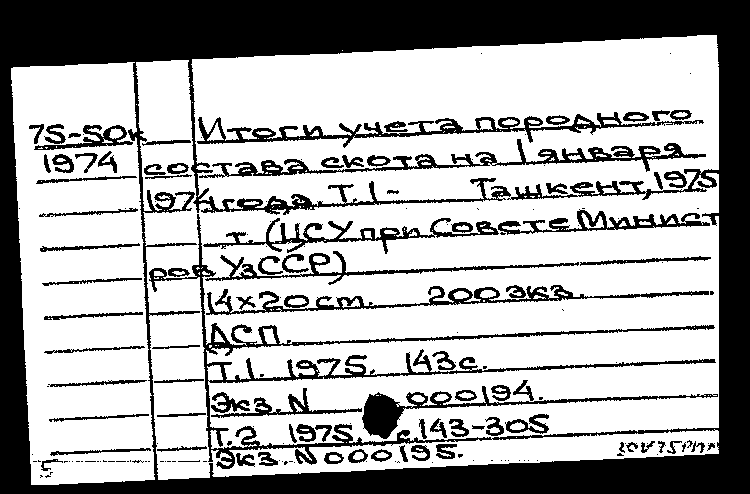 75-50к Итоги учета породного
1974 состава скота на 1 января
1974 года. Т. 1- Ташкент, 1975
т. (ЦСУ при Совете Минист
ров УзССР)
14х20 cm. 200 экз.
ДСП.
Т.1. 1975. 143с.
Экз. N 000194.
Т.2. 1975. с.143-305
Экз. N 000195.